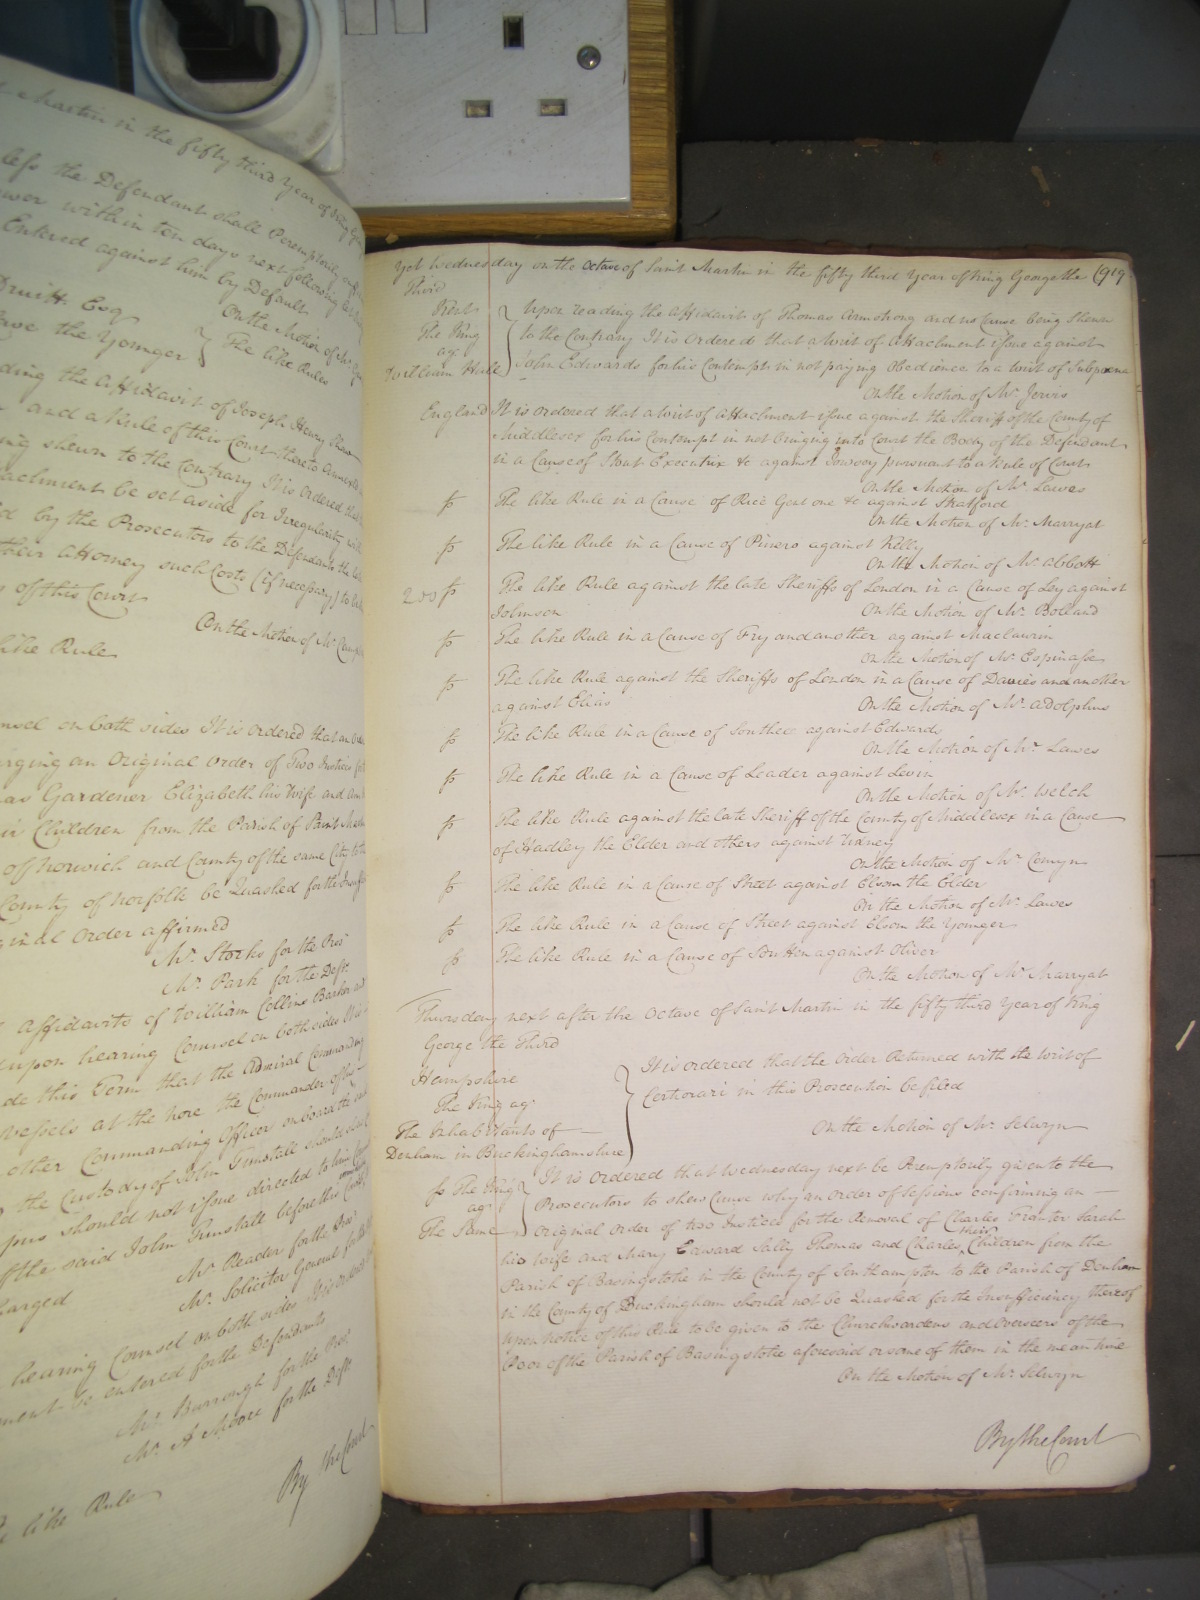 Martin in the fifty third Year of King
less the Defendant shall Peremptorily
within ten days next following
Entered against him by Default
On the Motion of Mr
Druitt Esq
the Younger } The like Rules
ding the Affidavit of Joseph Henry
and a Rule of this Court thereto Annexed
ing shewn to the Contrary It is Ordered that
tachment be set aside for Irregularity with
by the Prosecutors to the Defendants the
their Attorney such Costs (if necessary) to be
of this Court
On the Motion of Mr
like Rule
nsel on both sides It is Ordered that an
rging an Original Order of Two Justices for
as Gardener Elizabeth his Wife and
ir Children from the Parish of Saint
of Norwich and County of the same City to the
County of Norfolk be Quashed for the
ginal Order affirmed
Mr. Storks for the Pros
Mr. Park for the Deft.
Affidavits of William Collins Barker and
upon hearing Counsel on both sides It is
de this Term that the Admiral Commanding
vessels at the Nore the Commander of his
other Commanding Officer on board the
the Custody of John Tunstall should
pus should not issue directed to him
the said John Tunstall before this
harged
Mr. Reader for the Pros.
Mr. Solicitor General for the
hearing Counsel on both sides It is ordered
ment be entered for the Defendants
Mr. Burrough for the Pros.
Mr. A Moore for the Deft
By the Court
like Rule
Yet Wednesday on the Octave of Saint Martin in the fifty third Year of King George the (919
Third
Kent
The King
ag.
William Hull } Upon reading the Affidavit of Thomas Armstrong and no Cause being Shewn
to the Contrary It is Ordered that a Writ of Attachment issue against
John Edwards for his Contempt in not paying Obedience to a Writ of Subpoena
On the Motion of Mr. Jervis
England It is ordered that a Writ of Attachment issue against the Sheriff of the County of
Middlesex for his Contempt in not bringing into Court the Body of the Defendant
in a Cause of Stout Executrix &c against Towsey pursuant to a Rule of Court
On the Motion of Mr. Lawes
fs The like Rule in a Cause of Rice Gent one &c against Shatford
On the Motion of Mr. Marryat
fs The like Rule in a Cause of Pinero against Kelly
On the Motion of Mr. Abbott
200 fs The like Rule against the late Sheriffs of London in a Cause of Loy against
Johnson On the Motion of Mr. Bolland
fs The like Rule in a Cause of Fry and another against Maclaurin
On the Motion of Mr. Espinasse
fs The like Rule against the Sheriffs of London in a Cause of Davies and another
against Elias On the Motion of Mr. Adolphus
fs The like Rule in a Cause of Southee against Edwards
On the Motion of Mr. Lawes
fs The like Rule in a Cause of Leader against Levin
On the Motion of Mr. Welch
fs The like Rule against the late Sheriff of the County of Middlesex in a Cause
of Hadley the Elder and others against Udney
On the Motion of Mr. Comyn
fs The like Rule in a Cause of Street against Elsom the Elder
On the Motion of Mr. Lawes
fs The like Rule in a Cause of Street against Elsom the Younger
fs The like Rule in a Cause of Soutten against Oliver
On the Motion of Mr Marryat
Thursday next after the Octave of Saint Martin in the fifty third Year of King
George the Third
Hampshire
The King ag.
The Inhabitants of
Denham in Buckinghamshire } It is ordered that the Order Returned with the Writ of
Certiorari in this Prosecution be filed
On the Motion of Mr. Selwyn
fs The King
ag.
The Same } It is Ordered that Wednesday next be Peremptorily given to the
Prosecutors to shew Cause why an Order of Sessions confirming an
Original Order of two Justices for the Removal of Charles Franter Sarah
his Wife and Mary Edward Sally Thomas and Charles their Children from the
Parish of Basingstoke in the County of Southampton to the Parish of Denham
in the County of Buckingham should not be Quashed for the Insufficiency thereof
Upon Notice of this Rule to be given to the Churchwardens and Overseers of the
Poor of the Parish of Basingstoke aforesaid or some of them in the mean time
On the Motion of Mr. Selwyn
By the Court